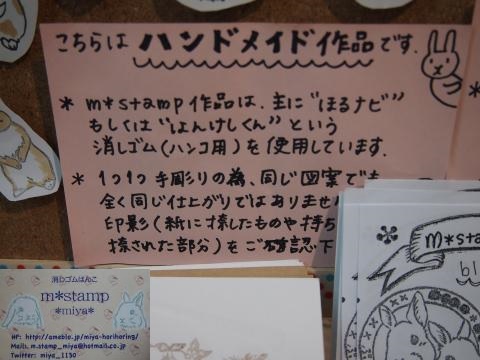 こちらは ハンドメイド作品です.
* m*stamp 作品は、主に"ほるナビ"
もしくは"よんけしくん"という
消しゴム(ハンコ用)を使用しています.
* 1つ1つ 手彫りの為、同じ図案でも
全く同じ仕上がりではありませ
印影(新に捺したものや持ち
捺された部分)をご確認下
消しゴムはんこ
m*stamp
*miya*
HP: http://ameblo.jp/miya-horihoring/
Mail: m.stamp_miya@hotmail.co.jp
Twitter: miya_1130
m*stamp
bl